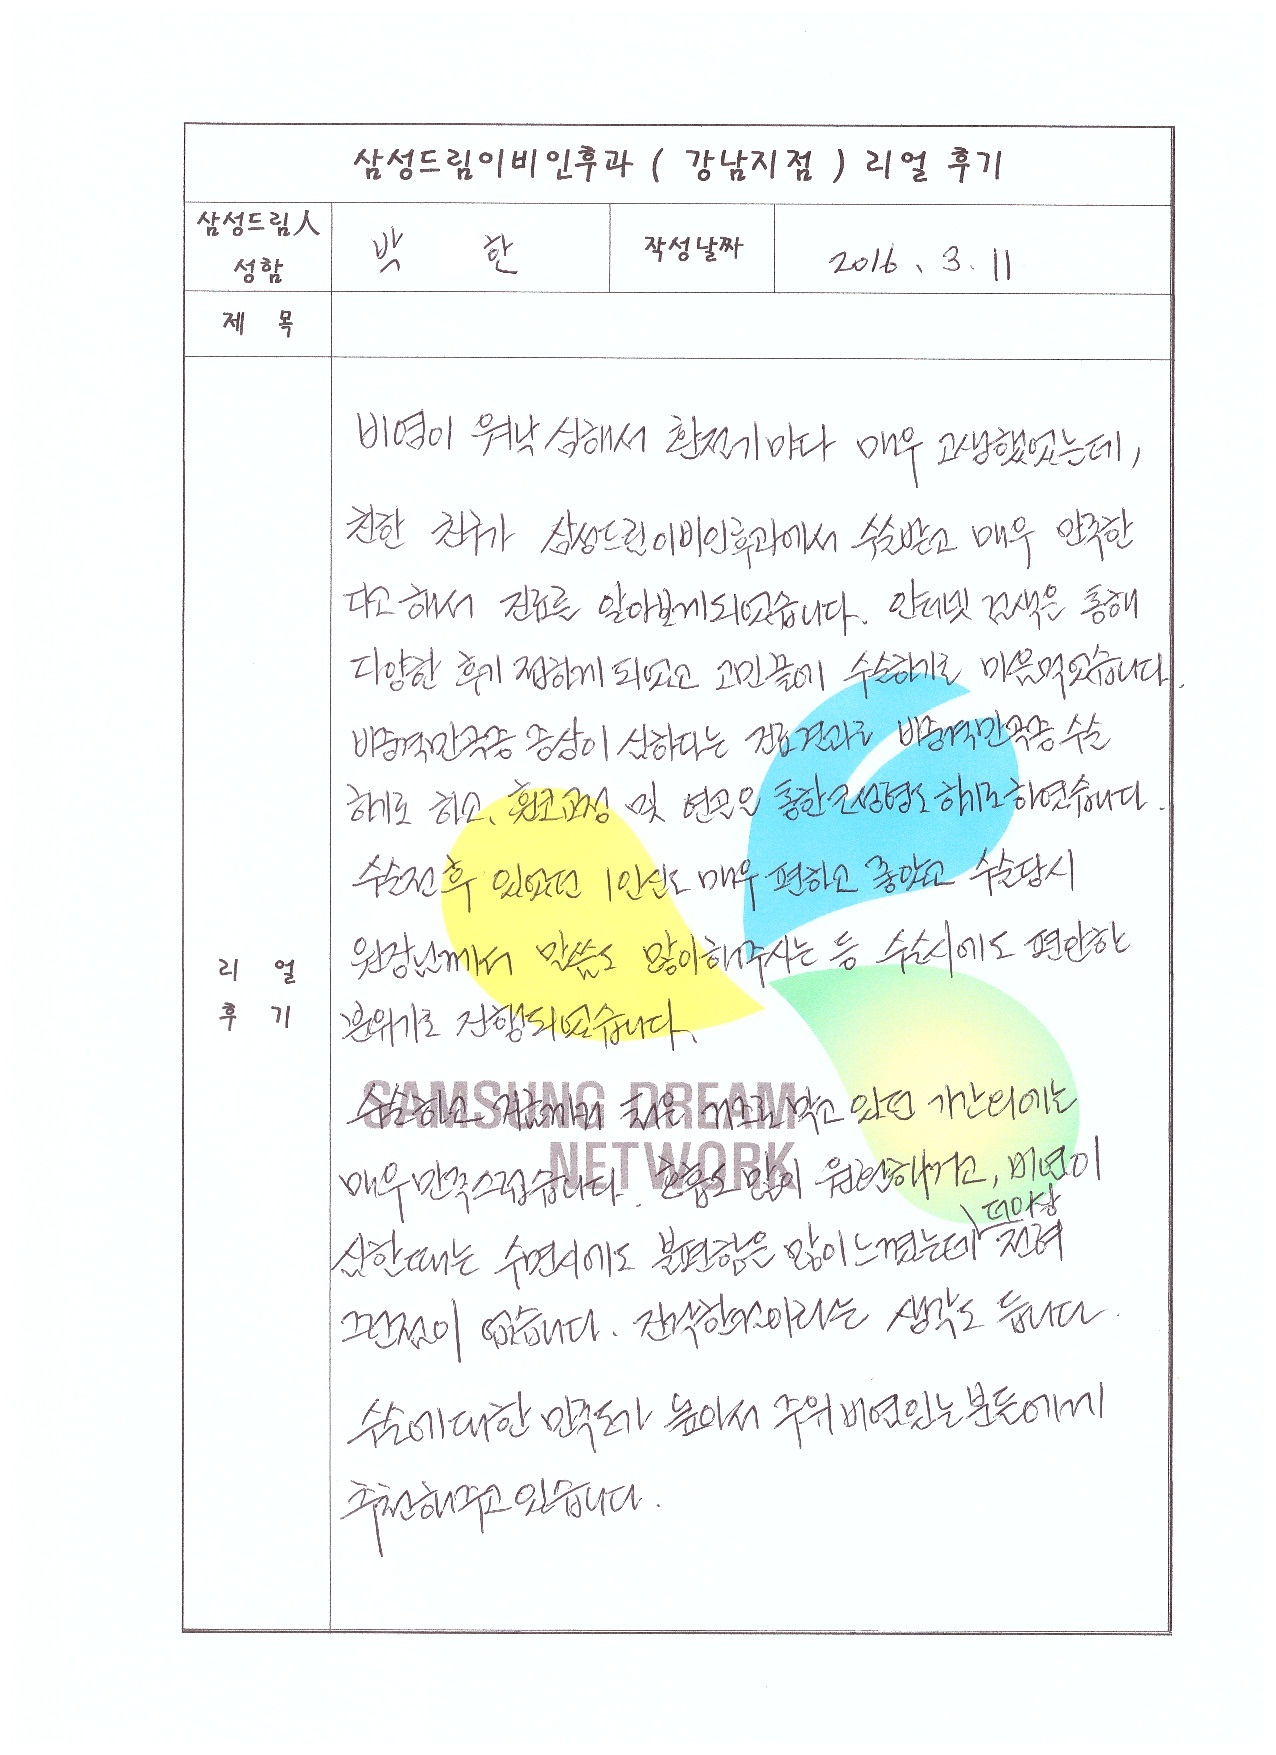 삼성드림이비인후과 ( 강남지점 ) 리얼 후기
삼성드림人 성함
박 한
작성날짜
2016. 3. 11
제 목
리 얼 후 기
비염이 워낙 심해서 환절기마다 매우 고생했었는데,
친한 친구가 삼성드림이비인후과에서 수술받고 매우 만족한
다고 해서 진료를 알아보게되었습니다. 인터넷 검색을 통해
다양한 후기 접하게 되었고 고민끝에 수술하기로 마음먹었습니다.
비중격만곡증 증상이 심하다는 검료결과로 비중격만곡증 수술
하기로 하고, 휜코교정 및 연골을 통한 코성형도 하기로하였습니다.
수술전후 있었던 1인실도 매우 편하고 좋았고 수술당시
원장님께서 말씀도 많이해주시는 등 수술시에도 편안한
분위기로 진행되었습니다.
수술하고 코로 막고 있던
매우만족스럽습니다. 호흡도 많이 원활해지고, 비염이
심한때는 수면시에도 불편함을 많이느꼈는데 더이상 전혀
그런점이 없습니다. 진작할것이라는 생각도 듭니다.
수술에대한 만족도가 높아서 주위 비염있는분들에게
추천해주고있습니다.
SAMSUNG DREAM
NETWORK